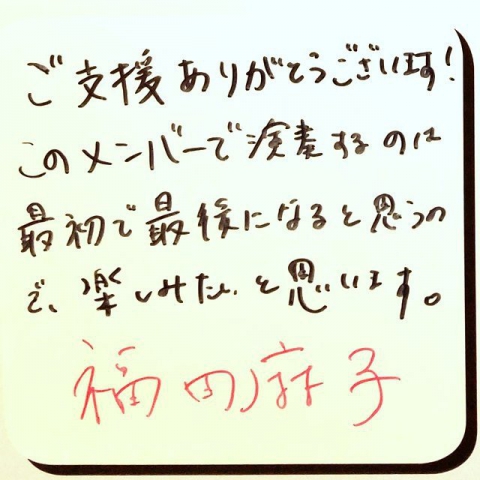 ご支援ありがとうございます!
このメンバーで演奏するのは
最初で最後になると思うの
で、楽しみたいと思います。
福田麻子